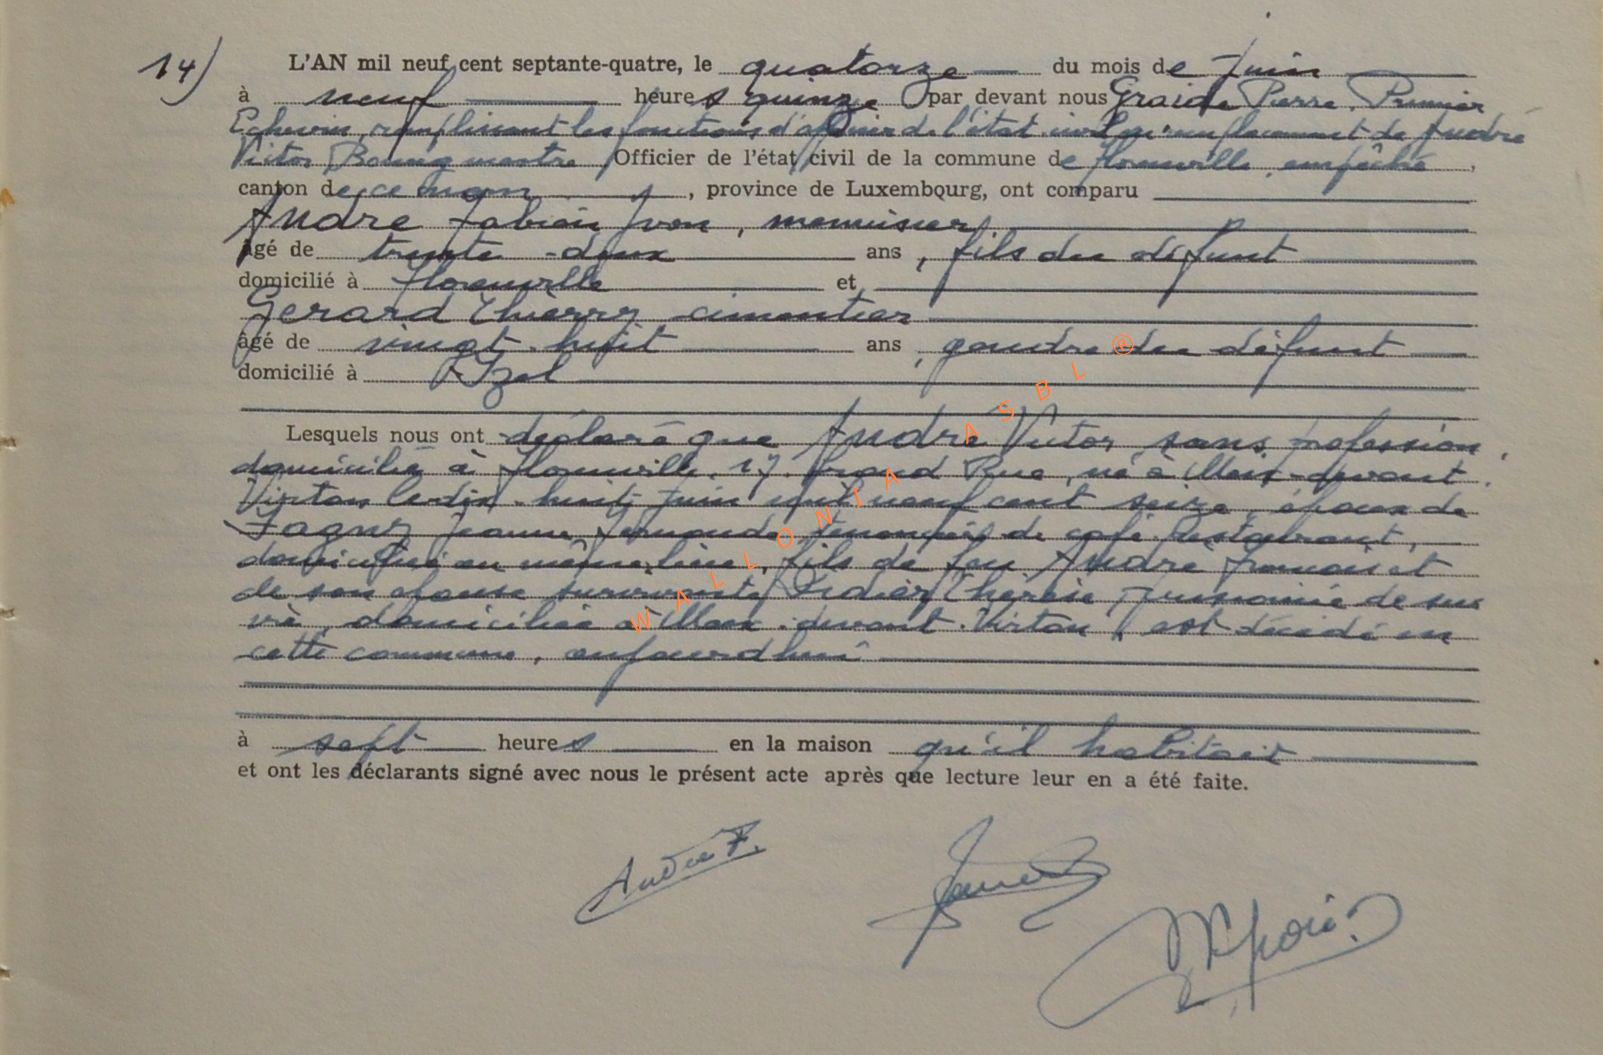 14) L'AN mil neuf cent septante-quatre, le quatorze du mois de Juin
à neuf heures quinze par devant nous Graide Pierre, Premier
Echevin, remplissant les fonctions d'officier de l'état civil en remplacement de André
Victor Bourgmestre Officier de l'état civil de la commune de Florenville, empêché,
canton de ce nom, province de Luxembourg, ont comparu
André Fabien Yvon, menuisier
âgé de trente-deux ans, fils du défunt
domicilié à Florenville et
Gerard Thierry cimentier
âgé de vingt-huit ans, gendre du défunt
domicilié à Izel
Lesquels nous ont déclaré que André Victor, sans profession,
domicilié à Florenville, 17, Grand Rue, né à Meix-devant-
Virton le dix-huit juin mil neuf cent seize, époux de
Fagny Jeanne Fernande, tenancière de café restaurant,
domiciliée au même lieu, fils de feu André François et
de son épouse survivante Didier Thérèse, pensionnée de sur
vie, domiciliée à Meix-devant-Virton, est décédé en
cette commune, aujourd'hui
à sept heures en la maison qu'il habitait
et ont les déclarants signé avec nous le présent acte après que lecture leur en a été faite.
André F.
WALLONIA ASBL ®